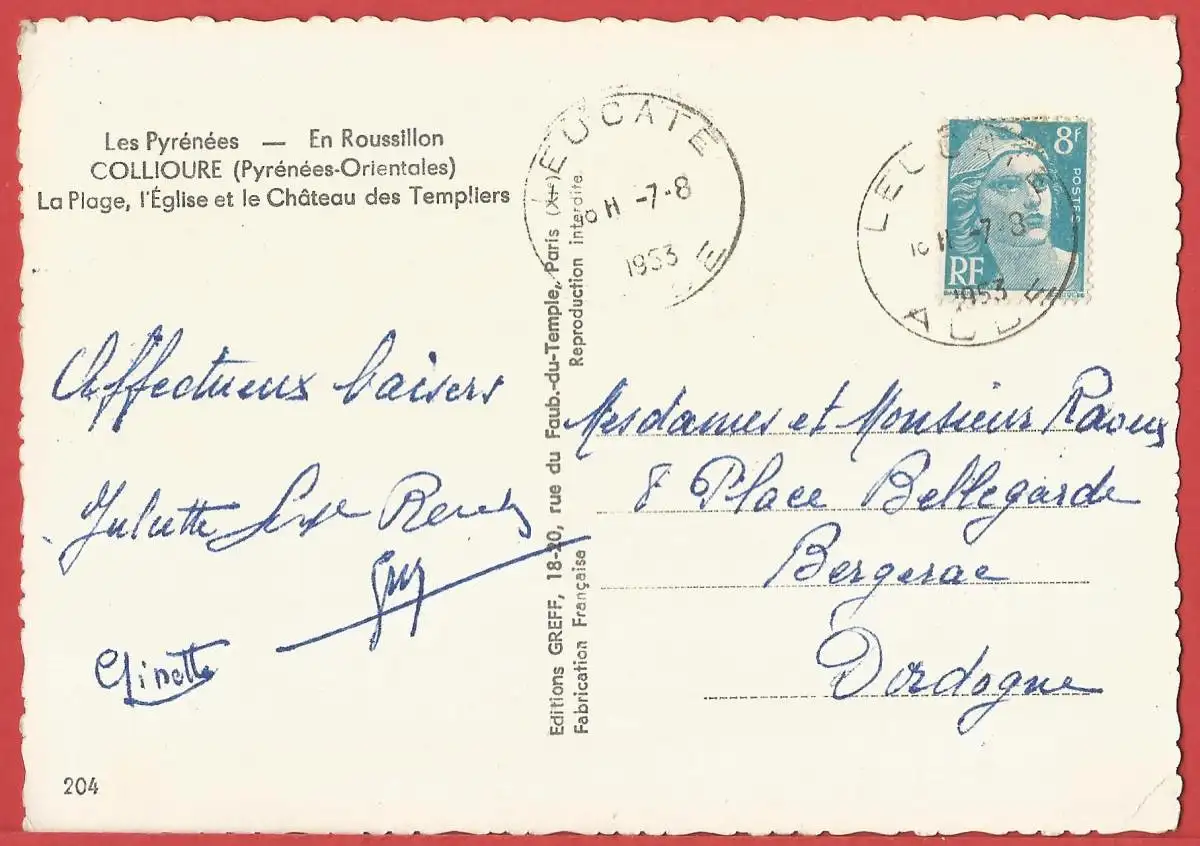 Les Pyrénées — En Roussillon
COLLIOURE (Pyrénées-Orientales)
La Plage, l'Église et le Château des Templiers
Affectueux baisers
Juliette
Guy
Ginette
204
Editions GREFF, 18-20, rue du Faub.-du-Temple, Paris (XIe)
Fabrication Française Reproduction interdite.
LEUCATE
16 H -7-8
1953
LEUCATE
16 H -7-8
1953
AUDE
8F
POSTES
RF
Mesdames et Monsieur Raoux
8 Place Bellegarde
Bergerac
Dordogne